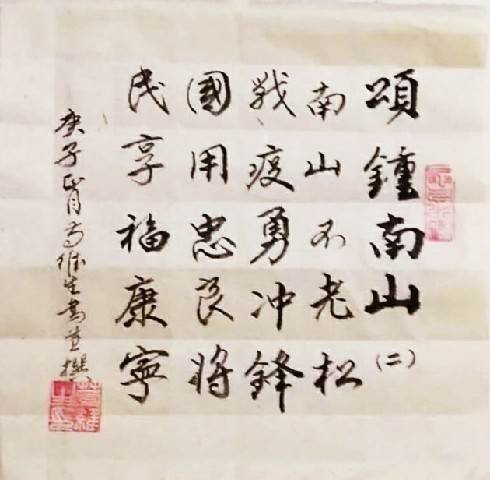 頌鍾南山(二)
南山不老松
戰疫勇冲鋒
國用忠良將
民享福康寧
庚子正月